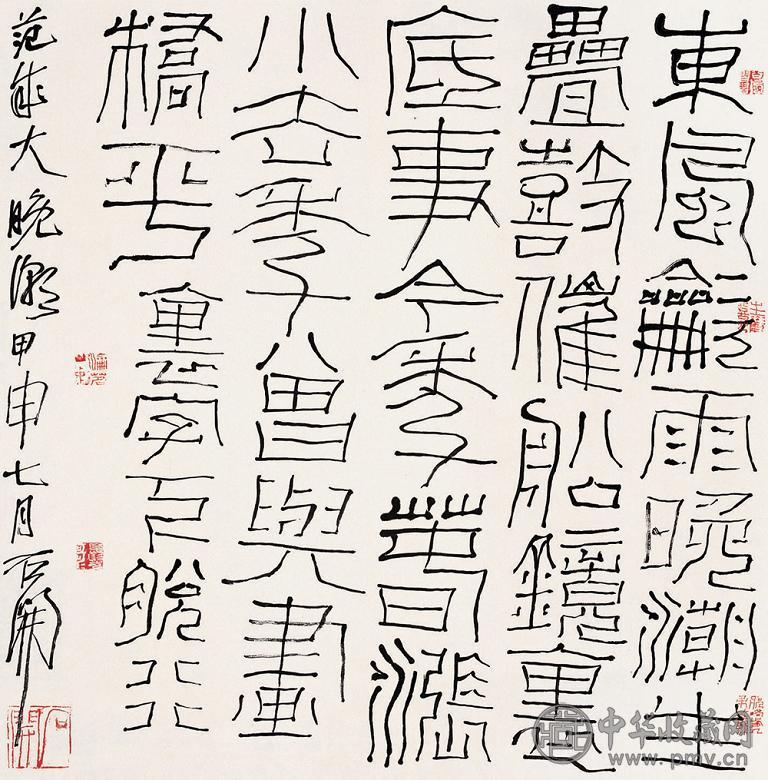 東風龡雨晚潮生
疊鼓催船鏡裏
底事今年春漲
小去年曾與畫
橋平裏字后脫行
范成大晚潮甲申七月石開
石開
中华收藏网
www.pmv.cn